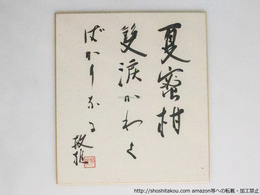 夏蜜柑
雙涙かわく
ばかりなる
http://www.shoshitakou.com amazon等への転載・加工禁止